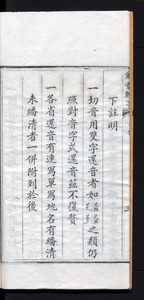 下註明
一切音用雙字還音者如
之類仍
照對音字式還音茲不復贅
一各省還音有連寫單寫地名有繙清
未繙清者一併附列於後